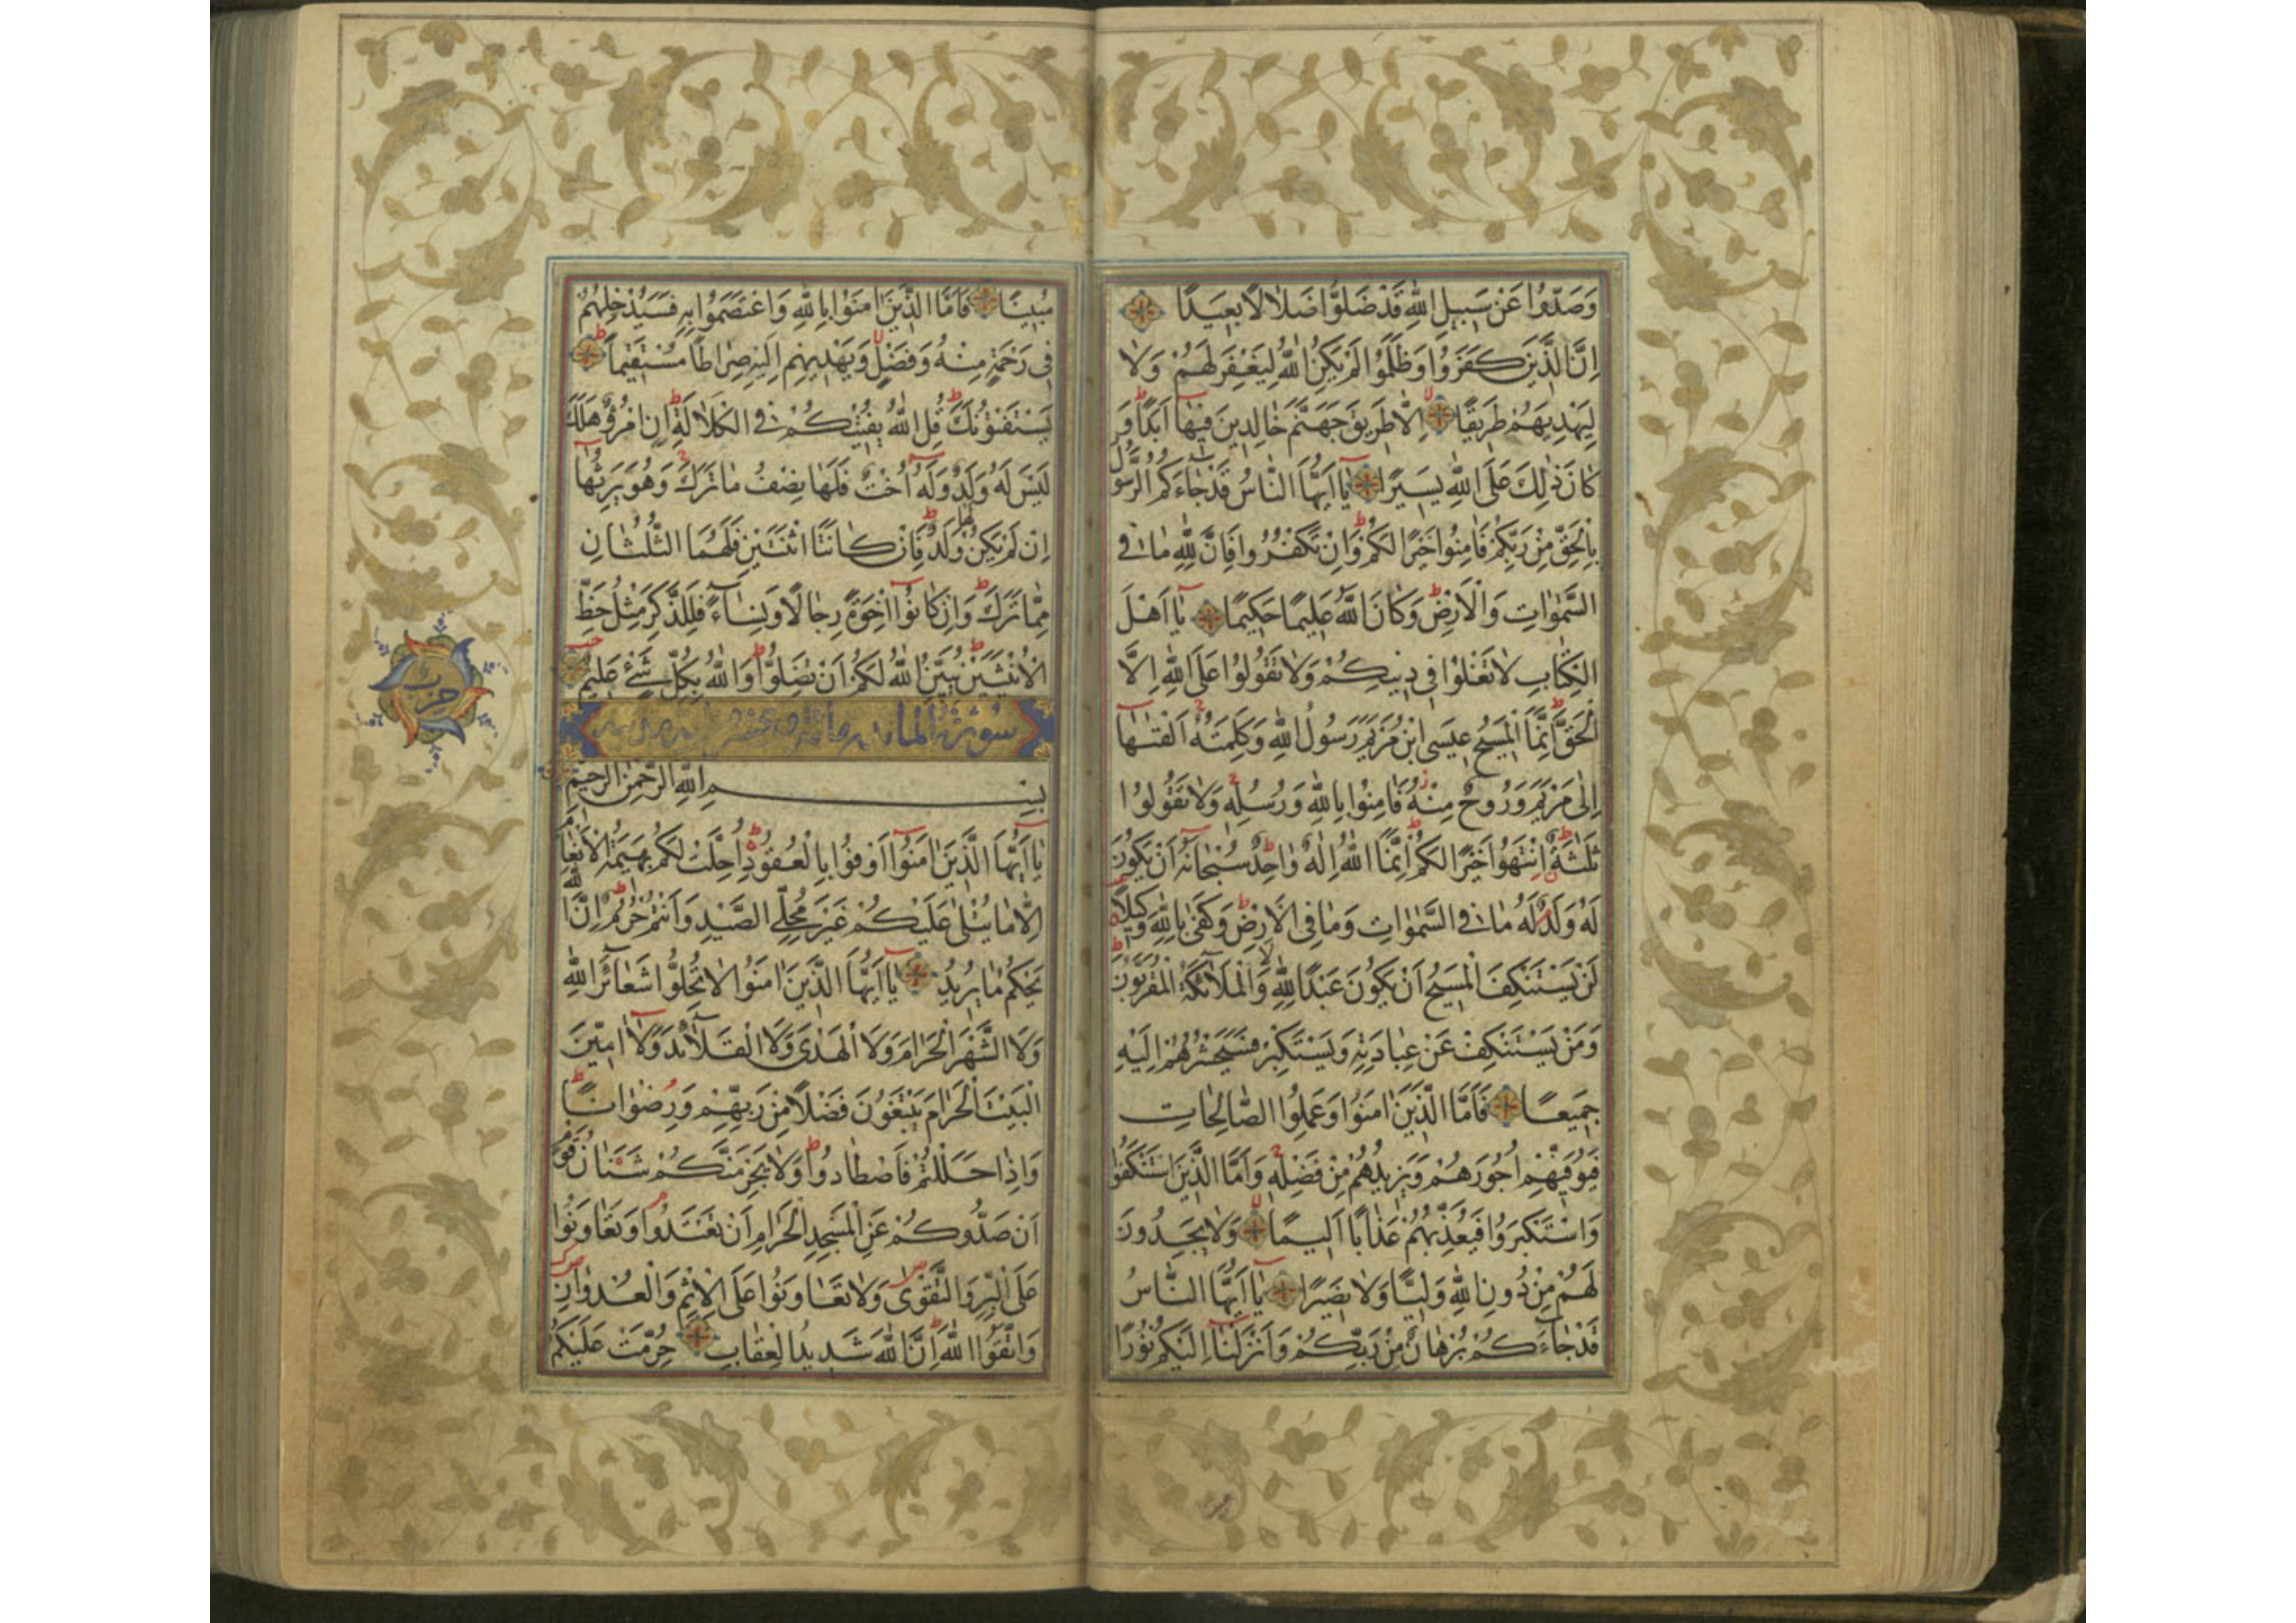 وَصَدُّوا عَنْ سَبِيلِ اللَّهِ قَدْ ضَلُّوا ضَلَالًا بَعِيدًا
اِنَّ الَّذِينَ كَفَرُوا وَظَلَمُوا لَمْ يَكُنِ اللَّهُ لِيَغْفِرَ لَهُمْ وَلَا
لِيَهْدِيَهُمْ طَرِيقًا اِلَّا طَرِيقَ جَهَنَّمَ خَالِدِينَ فِيهَا اَبَدًا وَ
كَانَ ذٰلِكَ عَلَى اللَّهِ يَسِيرًا يَا اَيُّهَا النَّاسُ قَدْ جَاءَكُمُ الرَّسُولُ
بِالْحَقِّ مِنْ رَبِّكُمْ فَاٰمِنُوا خَيْرًا لَكُمْ وَاِنْ تَكْفُرُوا فَاِنَّ لِلَّهِ مَا فِي
السَّمٰوَاتِ وَالْاَرْضِ وَكَانَ اللَّهُ عَلِيمًا حَكِيمًا يَا اَهْلَ
الْكِتَابِ لَا تَغْلُوا فِي دِينِكُمْ وَلَا تَقُولُوا عَلَى اللَّهِ اِلَّا
الْحَقَّ اِنَّمَا الْمَسِيحُ عِيسَى ابْنُ مَرْيَمَ رَسُولُ اللَّهِ وَكَلِمَتُهُ اَلْقٰيهَا
اِلٰى مَرْيَمَ وَرُوحٌ مِنْهُ فَاٰمِنُوا بِاللَّهِ وَرُسُلِهِ وَلَا تَقُولُوا
ثَلٰثَةٌ اِنْتَهُوا خَيْرًا لَكُمْ اِنَّمَا اللَّهُ اِلٰهٌ وَاحِدٌ سُبْحَانَهُ اَنْ يَكُونَ
لَهُ وَلَدٌ لَهُ مَا فِي السَّمٰوَاتِ وَمَا فِي الْاَرْضِ وَكَفٰى بِاللَّهِ وَكِيلًا
لَنْ يَسْتَنْكِفَ الْمَسِيحُ اَنْ يَكُونَ عَبْدًا لِلَّهِ وَلَا الْمَلَائِكَةُ الْمُقَرَّبُونَ
وَمَنْ يَسْتَنْكِفْ عَنْ عِبَادَتِهِ وَيَسْتَكْبِرْ فَسَيَحْشُرُهُمْ اِلَيْهِ
جَمِيعًا فَاَمَّا الَّذِينَ اٰمَنُوا وَعَمِلُوا الصَّالِحَاتِ
فَيُوَفِّيهِمْ اُجُورَهُمْ وَيَزِيدُهُمْ مِنْ فَضْلِهِ وَاَمَّا الَّذِينَ اسْتَنْكَفُوا
وَاسْتَكْبَرُوا فَيُعَذِّبُهُمْ عَذَابًا اَلِيمًا وَلَا يَجِدُونَ
لَهُمْ مِنْ دُونِ اللَّهِ وَلِيًّا وَلَا نَصِيرًا يَا اَيُّهَا النَّاسُ
قَدْ جَاءَكُمْ بُرْهَانٌ مِنْ رَبِّكُمْ وَاَنْزَلْنَا اِلَيْكُمْ نُورًا
مُبِينًا فَاَمَّا الَّذِينَ اٰمَنُوا بِاللَّهِ وَاعْتَصَمُوا بِهِ فَسَيُدْخِلُهُمْ
فِي رَحْمَةٍ مِنْهُ وَفَضْلٍ وَيَهْدِيهِمْ اِلَيْهِ صِرَاطًا مُسْتَقِيمًا
يَسْتَفْتُونَكَ قُلِ اللَّهُ يُفْتِيكُمْ فِي الْكَلَالَةِ اِنِ امْرُؤٌ هَلَكَ
لَيْسَ لَهُ وَلَدٌ وَلَهُ اُخْتٌ فَلَهَا نِصْفُ مَا تَرَكَ وَهُوَ يَرِثُهَا
اِنْ لَمْ يَكُنْ لَهَا وَلَدٌ فَاِنْ كَانَتَا اثْنَتَيْنِ فَلَهُمَا الثُّلُثَانِ
مِمَّا تَرَكَ وَاِنْ كَانُوا اِخْوَةً رِجَالًا وَنِسَاءً فَلِلذَّكَرِ مِثْلُ حَظِّ
الْاُنْثَيَيْنِ يُبَيِّنُ اللَّهُ لَكُمْ اَنْ تَضِلُّوا وَاللَّهُ بِكُلِّ شَيْءٍ عَلِيمٌ
سُورَةُ الْمَائِدَة
حزب
بِسْمِ اللَّهِ الرَّحْمٰنِ الرَّحِيمِ
يَا اَيُّهَا الَّذِينَ اٰمَنُوا اَوْفُوا بِالْعُقُودِ اُحِلَّتْ لَكُمْ بَهِيمَةُ الْاَنْعَامِ
اِلَّا مَا يُتْلٰى عَلَيْكُمْ غَيْرَ مُحِلِّي الصَّيْدِ وَاَنْتُمْ حُرُمٌ اِنَّ اللَّهَ
يَحْكُمُ مَا يُرِيدُ يَا اَيُّهَا الَّذِينَ اٰمَنُوا لَا تُحِلُّوا شَعَائِرَ اللَّهِ
وَلَا الشَّهْرَ الْحَرَامَ وَلَا الْهَدْيَ وَلَا الْقَلَائِدَ وَلَا اٰمِّينَ
الْبَيْتَ الْحَرَامَ يَبْتَغُونَ فَضْلًا مِنْ رَبِّهِمْ وَرِضْوَانًا
وَاِذَا حَلَلْتُمْ فَاصْطَادُوا وَلَا يَجْرِمَنَّكُمْ شَنَاٰنُ قَوْمٍ
اَنْ صَدُّوكُمْ عَنِ الْمَسْجِدِ الْحَرَامِ اَنْ تَعْتَدُوا وَتَعَاوَنُوا
عَلَى الْبِرِّ وَالتَّقْوٰى وَلَا تَعَاوَنُوا عَلَى الْاِثْمِ وَالْعُدْوَانِ
وَاتَّقُوا اللَّهَ اِنَّ اللَّهَ شَدِيدُ الْعِقَابِ حُرِّمَتْ عَلَيْكُمُ